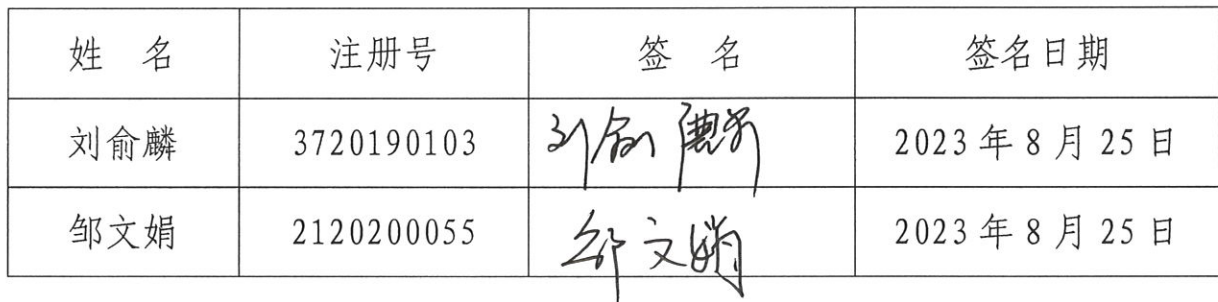 姓 名 注册号 签 名 签名日期
刘俞麟 3720190103 刘俞麟 2023年8月25日
邹文娟 2120200055 邹文娟 2023年8月25日